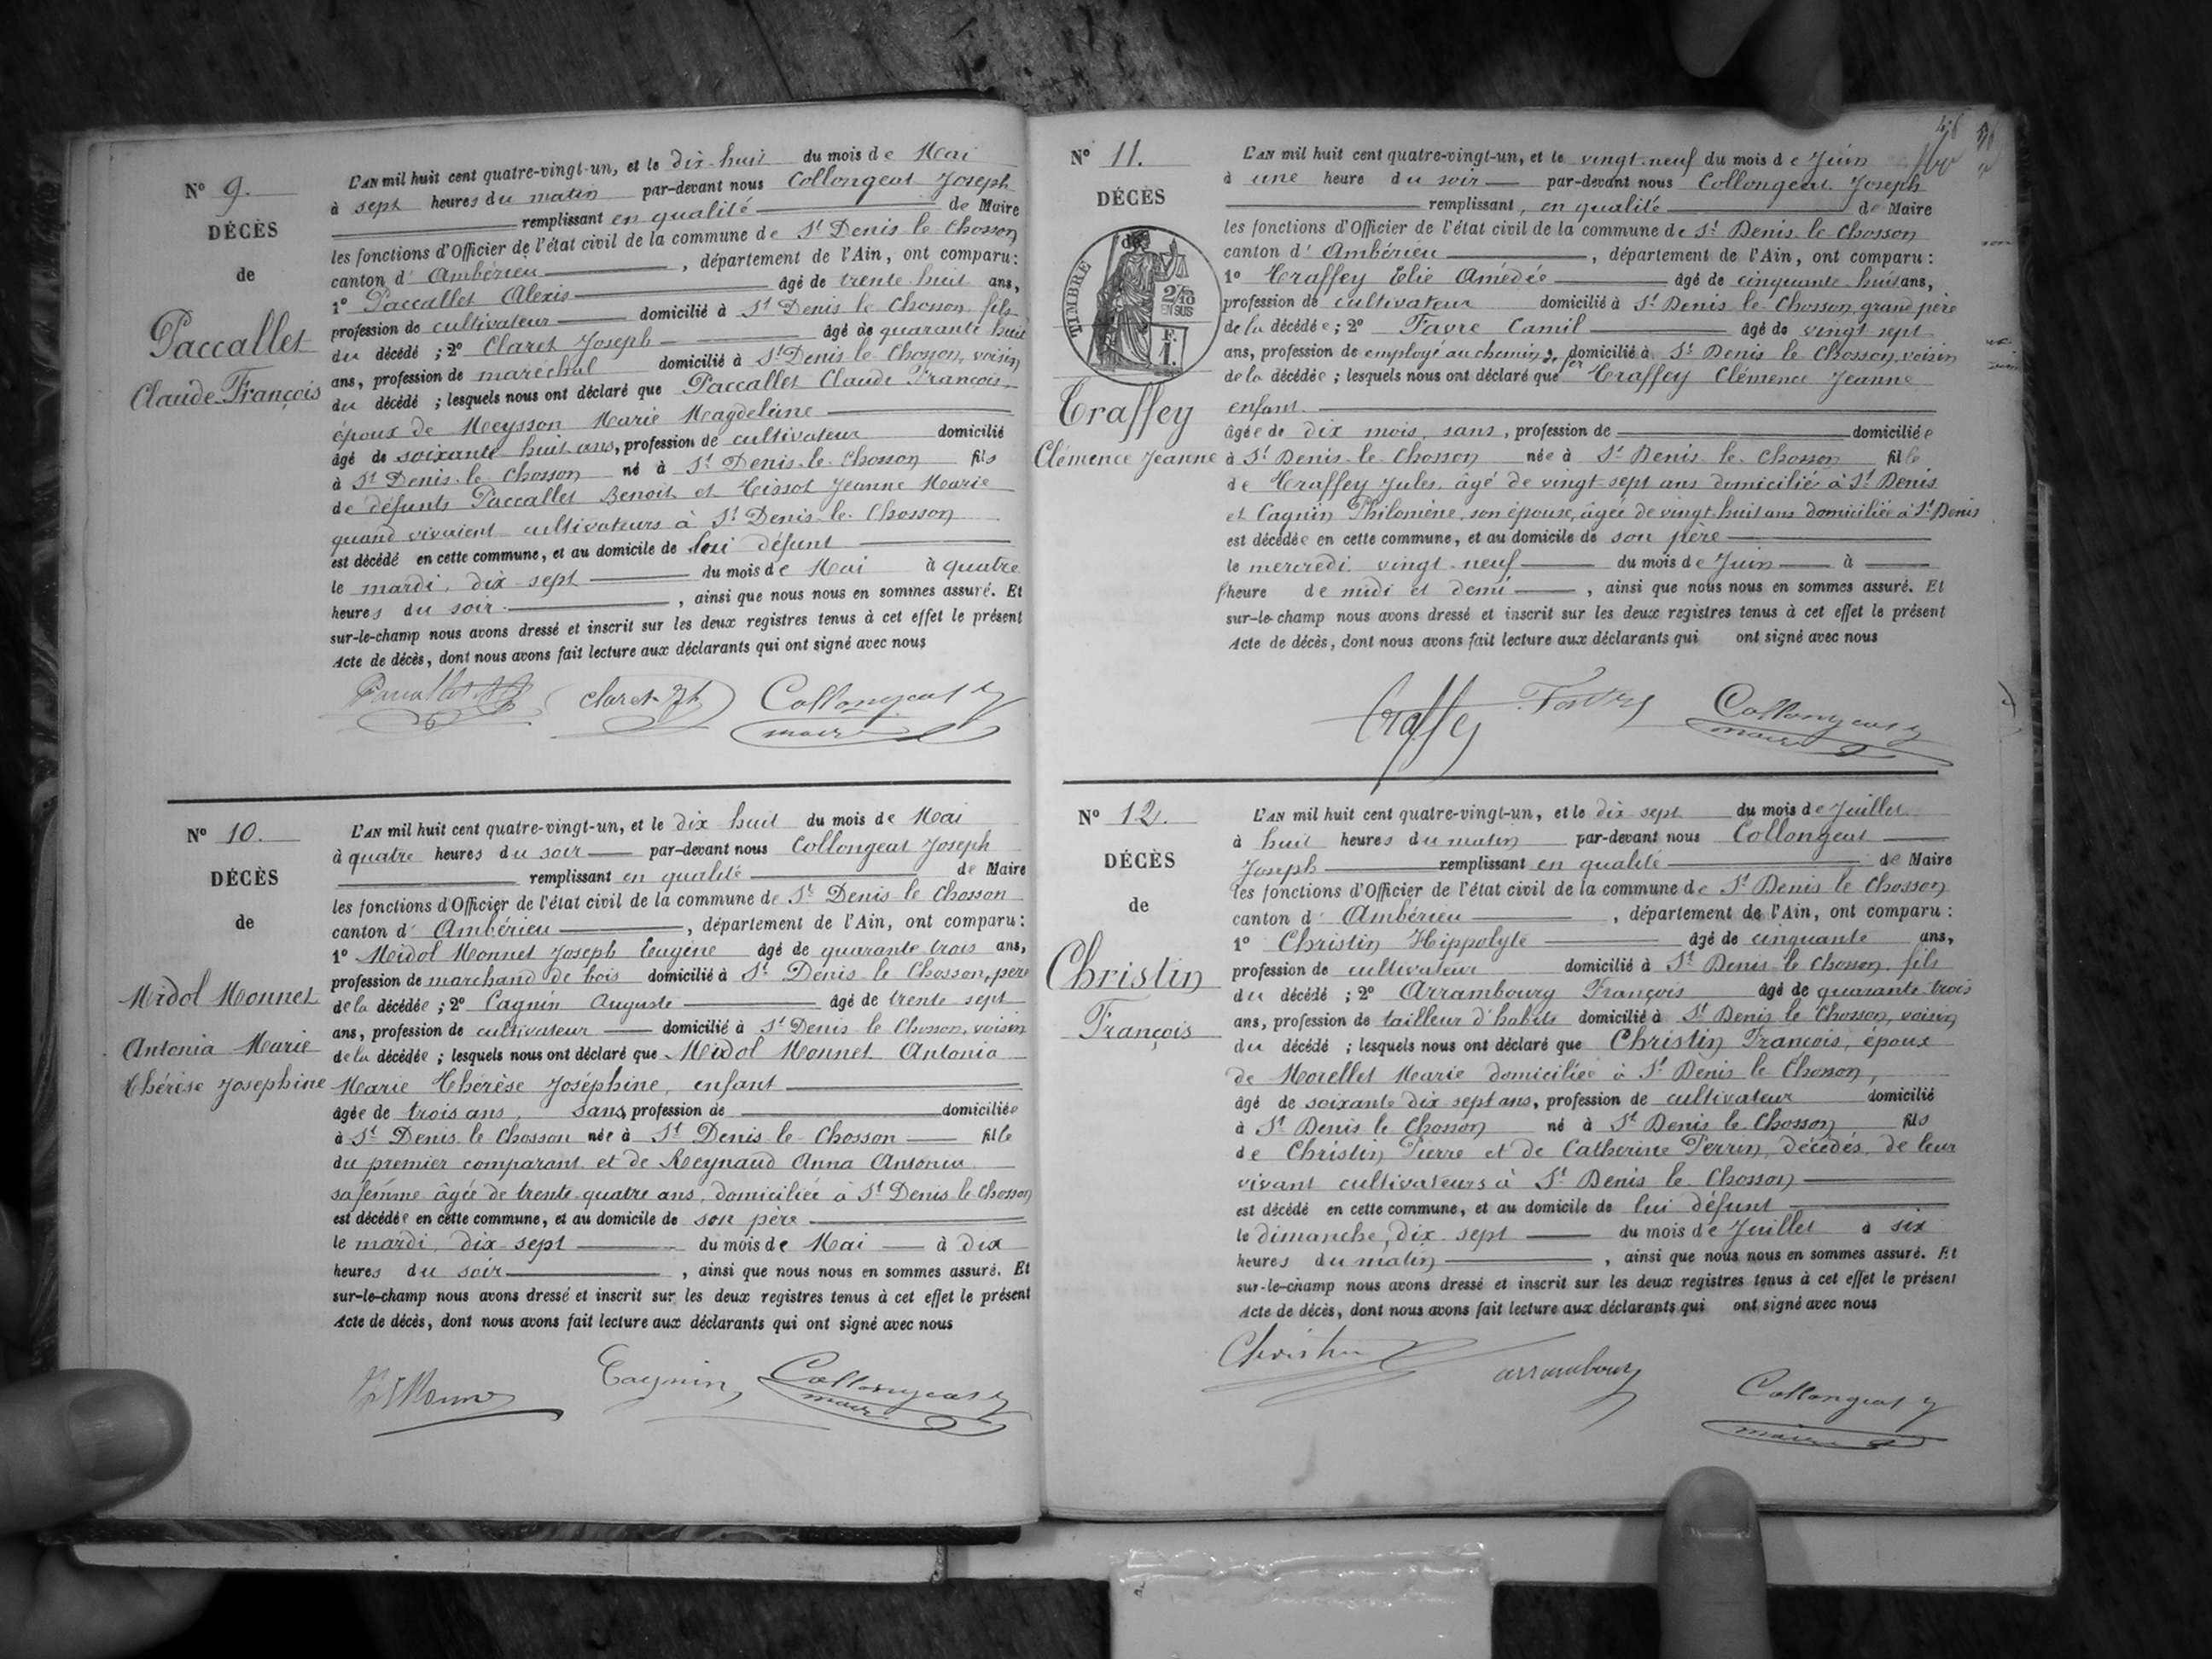 N° 9.
DÉCÈS
de
Paccallet
Claude François
L'AN mil huit cent quatre-vingt-un, et le dix-huit du mois de Mai
à sept heures du matin par-devant nous Collongeat Joseph
remplissant en qualité de Maire
les fonctions d'Officier de l'état civil de la commune de St Denis le Chosson
canton d' Ambérieu, département de l'Ain, ont comparu:
1° Paccallet Alexis âgé de trente huit ans,
profession de cultivateur domicilié à St Denis le Chosson fils
du décédé ; 2° Claret Joseph âgé de quarante huit
ans, profession de maréchal domicilié à St Denis le Chosson, voisin
du décédé ; lesquels nous ont déclaré que Paccallet Claude François
époux de Meysson Marie Magdeleine
âgé de soixante huit ans, profession de cultivateur domicilié
à St Denis le Chosson né à St Denis-le-Chosson fils
de défunts Paccallet Benoit et Tissot Jeanne Marie
quand vivaient cultivateurs à St Denis-le-Chosson
est décédé en cette commune, et au domicile de lui défunt
le mardi, dix sept du mois de Mai à quatre
heures du soir, ainsi que nous nous en sommes assuré. Et
sur-le-champ nous avons dressé et inscrit sur les deux registres tenus à cet effet le présent
Acte de décès, dont nous avons fait lecture aux déclarants qui ont signé avec nous
Paccallet Claret Jh Collongeat
maire
N° 10.
DÉCÈS
de
Midol Monnet
Antonia Marie
Thérèse Josephine
L'AN mil huit cent quatre-vingt-un, et le dix huit du mois de Mai
à quatre heures du soir par-devant nous Collongeat Joseph
remplissant en qualité de Maire
les fonctions d'Officier de l'état civil de la commune de St Denis le Chosson
canton d' Ambérieu, département de l'Ain, ont comparu:
1° Midol Monnet Joseph Eugène âgé de quarante trois ans,
profession de marchand de bois domicilié à St Denis le Chosson, père
de la décédée ; 2° Cagnin Auguste âgé de trente sept
ans, profession de cultivateur domicilié à St Denis le Chosson, voisin
de la décédée ; lesquels nous ont déclaré que Midol Monnet Antonia
Marie Thérèse Joséphine, enfant
âgée de trois ans, sans profession de domiciliée
à St Denis le Chosson née à St Denis le Chosson fille
du premier comparant et de Reynaud Anna Antonia
sa femme âgée de trente quatre ans, domiciliée à St Denis le Chosson
est décédée en cette commune, et au domicile de son père
le mardi, dix sept du mois de Mai à dix
heures du soir, ainsi que nous nous en sommes assuré. Et
sur-le-champ nous avons dressé et inscrit sur les deux registres tenus à cet effet le présent
Acte de décès, dont nous avons fait lecture aux déclarants qui ont signé avec nous
Cagnin Collongeat
maire
N° 11.
DÉCÈS
de
TIMBRE
2/10
EN SUS
F.
1.
Traffey
Clémence Jeanne
L'AN mil huit cent quatre-vingt-un, et le vingt-neuf du mois de Juin
à une heure du soir par-devant nous Collongeat Joseph
remplissant, en qualité de Maire
les fonctions d'Officier de l'état civil de la commune de St Denis le Chosson
canton d' Ambérieu, département de l'Ain, ont comparu:
1° Traffey Elie Amédée âgé de cinquante huit ans,
profession de cultivateur domicilié à St Denis le Chosson, grand père
de la décédée ; 2° Favre Camil âgé de vingt sept
ans, profession de employé au chemin de fer domicilié à St Denis le Chosson, voisin
de la décédée ; lesquels nous ont déclaré que Traffey Clémence Jeanne
enfant
âgée de dix mois, sans, profession de domiciliée
à St Denis le Chosson née à St Denis le Chosson fille
de Traffey Jules, âgé de vingt-sept ans domicilié à St Denis
et Cagnin Philomène, son épouse, âgée de vingt-huit ans domiciliée à St Denis
est décédée en cette commune, et au domicile de son père
le mercredi vingt-neuf du mois de Juin à
l'heure de midi et demi, ainsi que nous nous en sommes assuré. Et
sur-le-champ nous avons dressé et inscrit sur les deux registres tenus à cet effet le présent
Acte de décès, dont nous avons fait lecture aux déclarants qui ont signé avec nous
Traffey Favre Collongeat
maire
N° 12.
DÉCÈS
de
Christin
François
L'AN mil huit cent quatre-vingt-un, et le dix sept du mois de Juillet
à huit heures du matin par-devant nous Collongeat
Joseph remplissant en qualité de Maire
les fonctions d'Officier de l'état civil de la commune de St Denis le Chosson
canton d' Ambérieu, département de l'Ain, ont comparu:
1° Christin Hippolyte âgé de cinquante ans,
profession de cultivateur domicilié à St Denis le Chosson, fils
du décédé ; 2° Arrambourg François âgé de quarante trois
ans, profession de tailleur d'habits domicilié à St Denis le Chosson, voisin
du décédé ; lesquels nous ont déclaré que Christin François, époux
de Morellet Marie domiciliée à St Denis le Chosson,
âgé de soixante dix sept ans, profession de cultivateur domicilié
à St Denis le Chosson né à St Denis le Chosson fils
de Christin Pierre et de Catherine Perrin, décédés, de leur
vivant cultivateurs à St Denis le Chosson
est décédé en cette commune, et au domicile de lui défunt
le dimanche, dix-sept du mois de Juillet à six
heures du matin, ainsi que nous nous en sommes assuré. Et
sur-le-champ nous avons dressé et inscrit sur les deux registres tenus à cet effet le présent
Acte de décès, dont nous avons fait lecture aux déclarants qui ont signé avec nous
Christin arrambourg Collongeat
maire